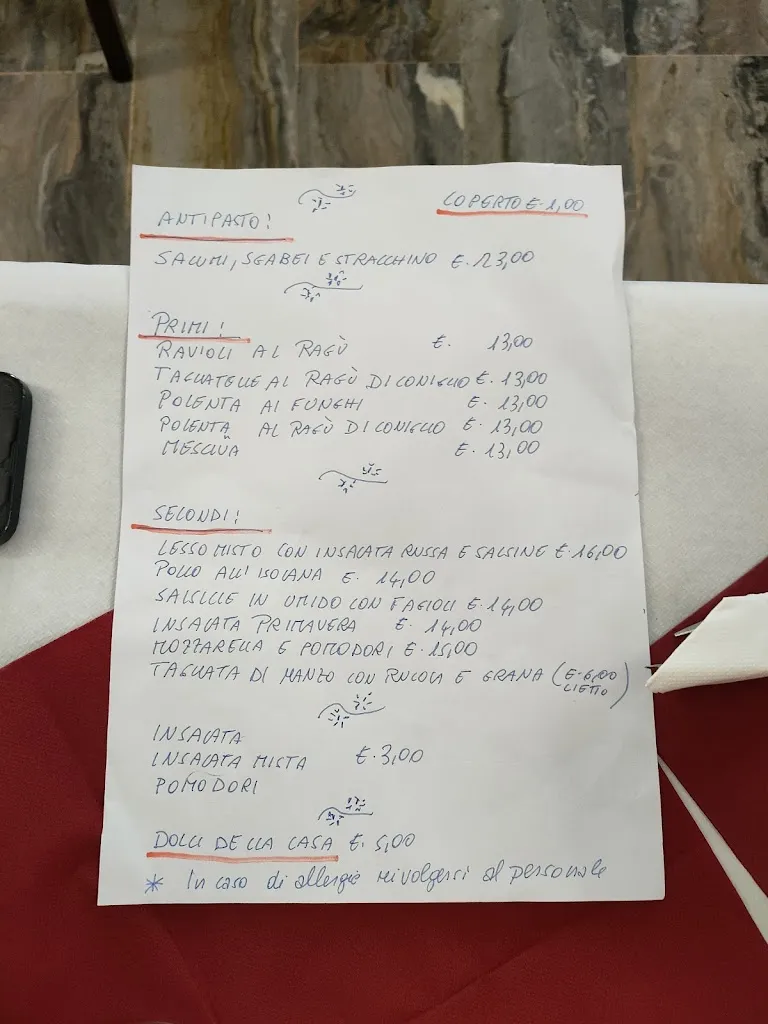 COPERTO €. 1,00
ANTIPASTO!
SALUMI, SGABEI E STRACCHINO €. 13,00
PRIMI!
RAVIOLI AL RAGÙ €. 13,00
TAGLIATELLE AL RAGÙ DI CONIGLIO €. 13,00
POLENTA AI FUNGHI €. 13,00
POLENTA AL RAGÙ DI CONIGLIO €. 13,00
MESCIÙA €. 13,00
SECONDI!
LESSO MISTO CON INSALATA RUSSA E SALSINE €. 16,00
POLLO ALL'ISOLANA €. 14,00
SALSICCE IN UMIDO CON FAGIOLI €. 14,00
INSALATA PRIMAVERA €. 14,00
MOZZARELLA E POMODORI €. 15,00
TAGLIATA DI MANZO CON RUCOLA E GRANA (€. 6,00
L'ETTO)
INSALATA
INSALATA MISTA €. 3,00
POMODORI
DOLCI DELLA CASA €. 5,00
* In caso di allergie rivolgersi al personale